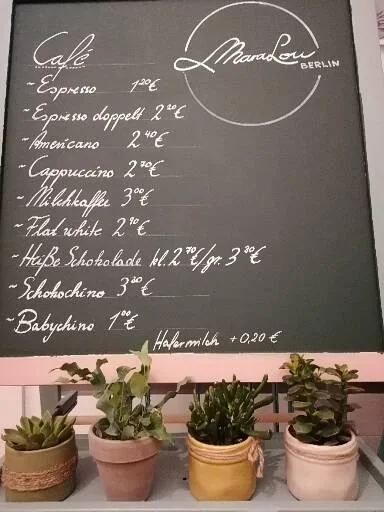 Café
MaraLou
BERLIN
~ Espresso 1²⁰€
~ Espresso doppelt 2²⁰€
~ Americano 2⁴⁰€
~ Cappuccino 2⁷⁰€
~ Milchkaffee 3⁰⁰€
~ Flat white 2⁹⁰€
~ Heiße Schokolade kl. 2⁷⁰€/gr. 3³⁰€
~ Schokochino 3³⁰€
~ Babychino 1⁰⁰€
Hafermilch +0,20 €